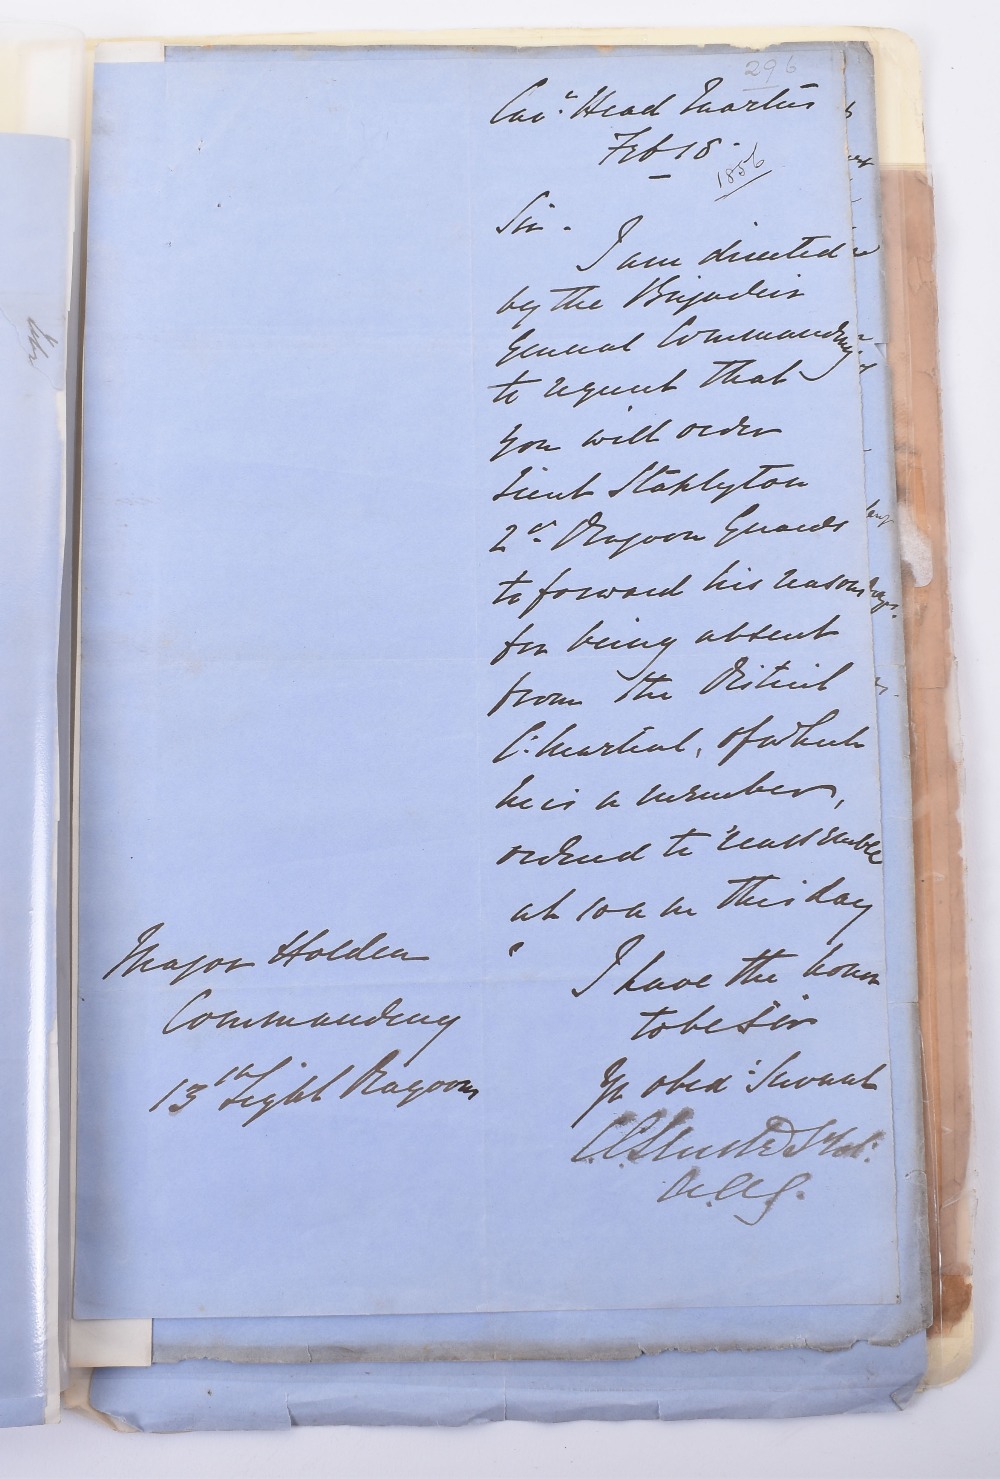 296
Cavy. Head Quarters
Feb 18.
1856
Sir.
I am directed
by the Brigadier
General Commanding
to request that
you will order
Lieut Stapleton
2d. Dragoon Guards
to forward his reasons
for being absent
from the District
C: Martial, of which
he is a member,
ordered to reassemble
at 10 a m this day
I have the honor
to be Sir
Yr obed: Servant
A.A.G.
Major Holden
Commanding
13th Light Dragoons